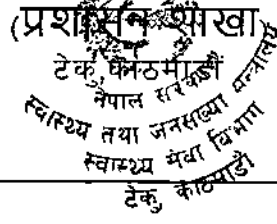 (प्रशासन शाखा)
टेकु, काठमाडौं
नेपाल सरकार
स्वास्थ्य तथा जनसंख्या मन्त्रालय
स्वास्थ्य सेवा विभाग
टेकु, काठमाडौं